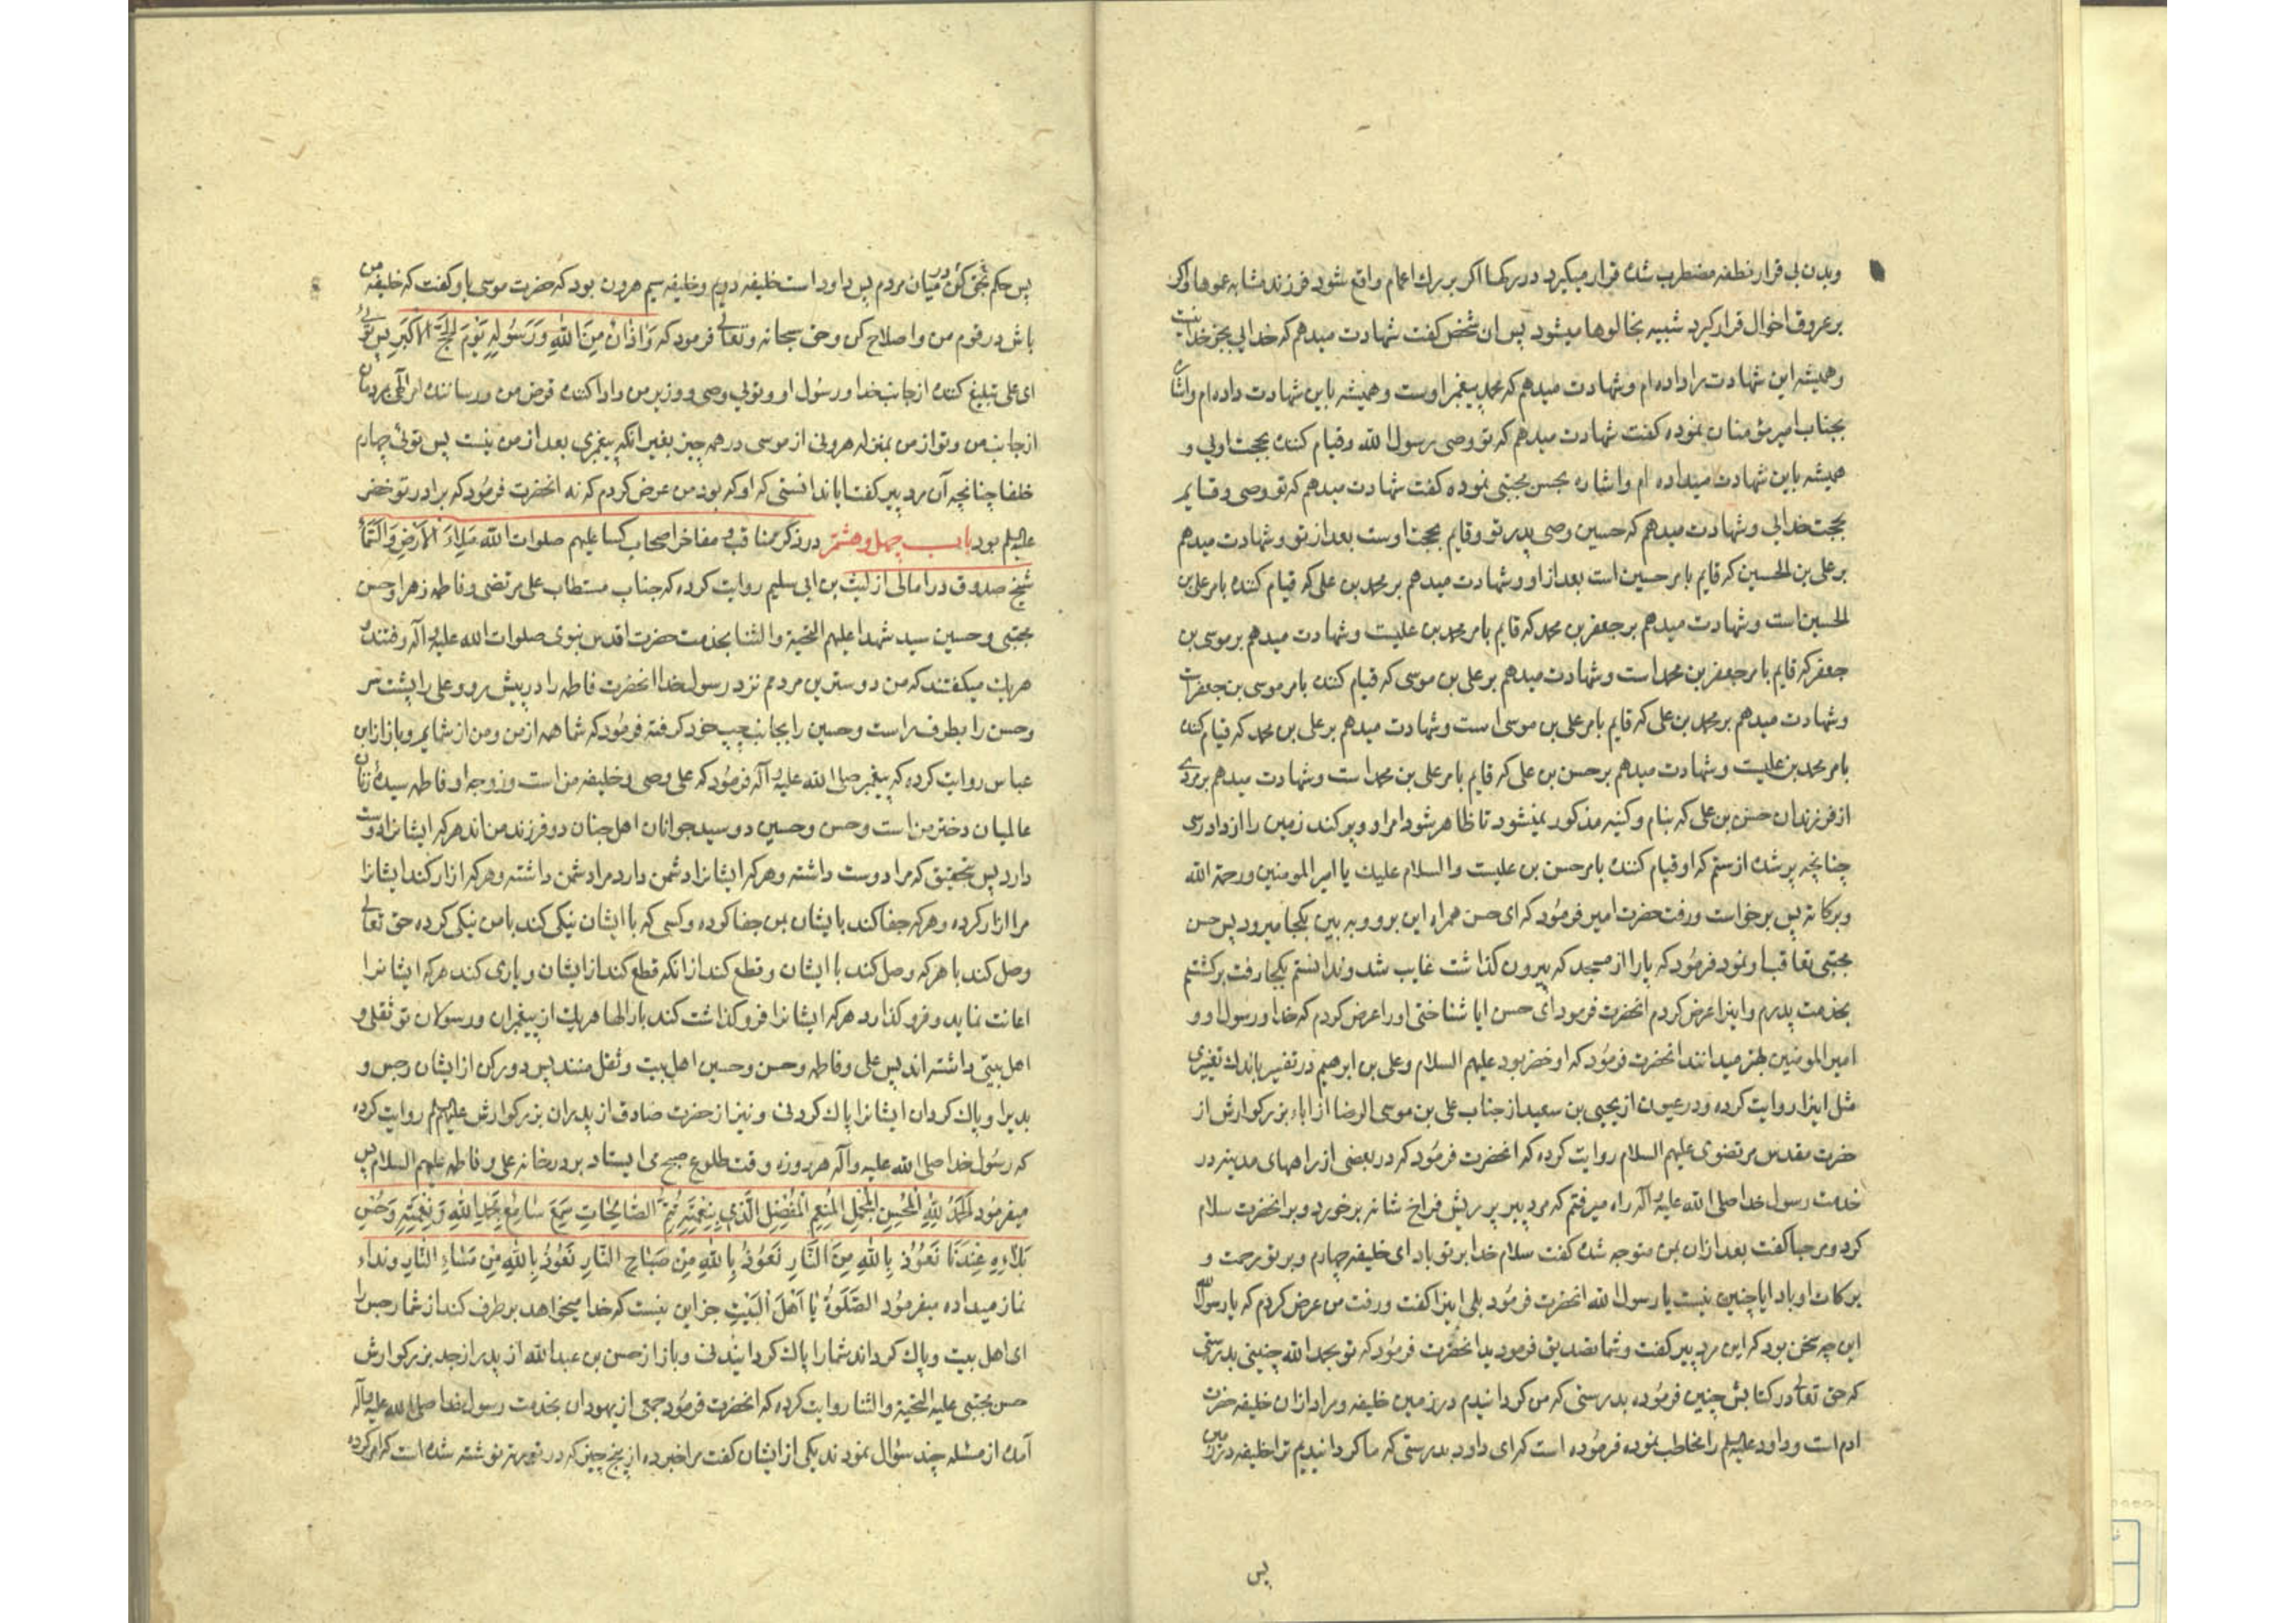 وبدن بی قرار نطفه مضطرب شده قرار میکیرد در رکها اکر بر رك اعمام واقع شود فرزند مشابه عموها واکر
بر عروق اخوال قرار کیرد شبیه بخالوها میشود پس ان شخص کفت شهادت میدهم که خدایی بجز خدا نیست
وهمیشه این شهادت را داده ام وشهادت میدهم که محمد پیغمبر اوست وهمیشه باین شهادت داده ام واشاره
بجناب امیرمؤمنان نموده کفت شهادت میدهم که تو وصی رسول الله وقیام کننده بحجت اویی و
همیشه باین شهادت میداده ام واشاره بحسن مجتبی نموده کفت شهادت میدهم که تو وصی وقایم
بحجت خدایی وشهادت میدهم که حسین وصی پدر تو وقایم بحجت اوست بعد از تو وشهادت میدهم
بر علی بن الحسین که قایم بامر حسین است بعد از او وشهادت میدهم بر محمد بن علی که قیام کننده بامر علی بن
الحسین است وشهادت میدهم بر جعفر بن محمد که قایم بامر محمد بن علیست وشهادت میدهم بر موسی بن
جعفر که قایم بامر جعفر بن محمد است وشهادت میدهم بر علی بن موسی که قیام کننده بامر موسی بن جعفر است
وشهادت میدهم بر محمد بن علی که قایم بامر علی بن موسی است وشهادت میدهم بر علی بن محمد که قیام کننده
بامر محمد بن علیست وشهادت میدهم بر حسن بن علی که قایم بامر علی بن محمد است وشهادت میدهم بر مردی
از فرزندان حسن بن علی که بنام وکنیه مذکور نمیشود تا ظاهر شود امر او وپر کند زمین را از دادرسی
چنانچه پر شده از ستم که او قیام کننده بامر حسن بن علیست والسلام علیك یا امیر المومنین ورحمة الله
وبرکاته پس برخواست ورفت حضرت امیر فرمود که ای حسن همراه این برو وبه بین بکجا میرود پس حسن
مجتبی تعاقب او نمود فرمود که پا را از مسجد که بیرون کذاشت غایب شد وندانستم بکجا رفت برکشتم
بخدمت پدرم واینرا عرض کردم انحضرت فرمود ای حسن ایا شناختی او را عرض کردم که خدا ورسول او و
امیر المومنین بهتر میدانند انحضرت فرمود که او خضر بود علیهم السلام وعلی بن ابرهیم در تفسیر باندك تغییری
مثل اینرا روایت کرده ودر عیون از یحیی بن سعید از جناب علی بن موسی الرضا از اباء بزرکوارش از
حضرت مقدس مرتضوی علیهم السلام روایت کرده که انحضرت فرمود که در بعضی از راههای مدینه در
خدمت رسول خدا صلی الله علیه وآله راه میرفتم که مرد پیر پر ریش فراخ شانه برخورد وبر انحضرت سلام
کرد ومرحبا کفت بعد از ان بمن متوجه شده کفت سلام خدا بر تو باد ای خلیفه چهارم وبر تو رحمت و
برکات او باد ایا چنین نیست یا رسول الله انحضرت فرمود بلی اینرا کفت ورفت من عرض کردم که یا رسول الله
این چه سخن بود که این مرد پیر کفت وشما تصدیق فرمودید انحضرت فرمود که تو بحمد الله چنینی بدرستی
که حق تعالی در کتابش چنین فرموده بدرستی که من کردانیدم در زمین خلیفه ومراد از ان خلیفه حضرت
ادم است وداود علیه السلم را مخاطب نموده فرموده است که ای داود بدرستی که ما کردانیدیم ترا خلیفه در زمین
پس
پس حکم بحق کن در میان مردم پس داود است خلیفه دویم وخلیفه سیم هرون بود که حضرت موسی باو کفت که خلیفه من
باش در قوم من واصلاح کن وحق سبحانه وتعالی فرمود که وَاَذَانٌ مِنَ اللهِ وَرَسُولِهِ یَوْمَ الحَجِّ الاَکْبَرِ پس تویی
ای علی تبلیغ کننده از جانب خدا ورسول او وتویی وصی ووزیر من وادا کننده قرض من ورساننده امر الهی بمردمان
از جانب من وتو از من بمنزله هرونی از موسی در همه چیز بغیر انکه پیغمبری بعد از من نیست پس تویی چهارم
خلفا چنانچه آن مرد پیر کفت ایا ندانستی که او که بود من عرض کردم که نه انحضرت فرمود که برادر تو خضر
علیه السلم بود باب چهل وهشتم در ذکر مناقب ومفاخر اصحاب کسا علیهم صلوات الله مَلاَءَ الاَرْضِ وَالسَّمَاءِ
شیخ صدوق در امالی از لیث بن ابی سلیم روایت کرده که جناب مستطاب علی مرتضی وفاطمه زهرا وحسن
مجتبی وحسین سید شهدا علیهم التحیة والثنا بخدمت حضرت اقدس نبوی صلوات الله علیه وآله رفتند و
هر یك میکفتند که من دوسترین مردمم نزد رسول خدا انحضرت فاطمه را در پیش رو وعلی را پشت سر
وحسن را بطرف راست وحسین را بجانب چپ خود کرفته فرمود که شما همه از من ومن از شمایم وباز از ابن
عباس روایت کرده که پیغمبر صلی الله علیه وآله فرمود که علی وصی وخلیفه من است وزوجه او فاطمه سیدهٔ زنان
عالمیان دختر من است وحسن وحسین دو سید جوانان اهل جنان دو فرزند من اند هر که ایشانرا دوست
دارد پس بتحقیق که مرا دوست داشته وهر که ایشانرا دشمن دارد مرا دشمن داشته وهر که ازار کند ایشانرا
مرا ازار کرده وهر که جفا کند بایشان بمن جفا کرده وکسی که با ایشان نیکی کند با من نیکی کرده حق تعالی
وصل کند با هر که وصل کند با ایشان وقطع کند از انکه قطع کند از ایشان ویاری کند هر که ایشانرا
اعانت نماید وفرو کذارد هر که ایشانرا فرو کذاشت کند بار الها هر یك از پیغمبران ورسولان تو ثقلی و
اهل بیتی داشته اند پس علی وفاطمه وحسن وحسین اهل بیت وثقل منند پس دور کن از ایشان رجس و
بدیرا وپاك کردان ایشانرا پاك کردنی ونیز از حضرت صادق از پدران بزرکوارش علیهم السلم روایت کرده
که رسول خدا صلی الله علیه وآله هر روزه وقت طلوع صبح می ایستاد بر درخانه علی وفاطمه علیهم السلام پس
میفرمود اَلحَمْدُ لِلّهِ المُحْسِنِ المُجْمِلِ المُنْعِمِ المُفْضِلِ الَّذی بِنِعْمَتِهِ تَتِمُّ الصَّالِحَاتِ سَمِعَ سَامِعٌ بِحَمْدِ اللهِ وَنِعْمَتِهِ وَحُسْنِ
بَلاَءِهِ عِنْدَنَا نَعُوْذُ بِاللهِ مِنَ النَّارِ نَعُوْذُ بِاللهِ مِنْ صَبَاحِ النَّارِ نَعُوْذُ بِاللهِ مِنْ مَسَاءِ النَّارِ ونداء
نماز میداده میفرمود الصَّلَوةُ یَا اَهْلَ البَیْتِ جز این نیست که خدا میخواهد بر طرف کند از شما رجس را
ای اهل بیت وپاك کرداند شما را پاك کردانیدنی وباز از حسن بن عبدالله از پدر از جد بزرکوارش
حسن مجتبی علیه التحیة والثنا روایت کرده که انحضرت فرمود جمعی از یهودان بخدمت رسول خدا صلی الله علیه وآله
آمده از مسئله چند سؤال نمودند یکی از ایشان کفت مرا خبر ده از پنج چیز که در توریة نوشته شده است که امر کرده